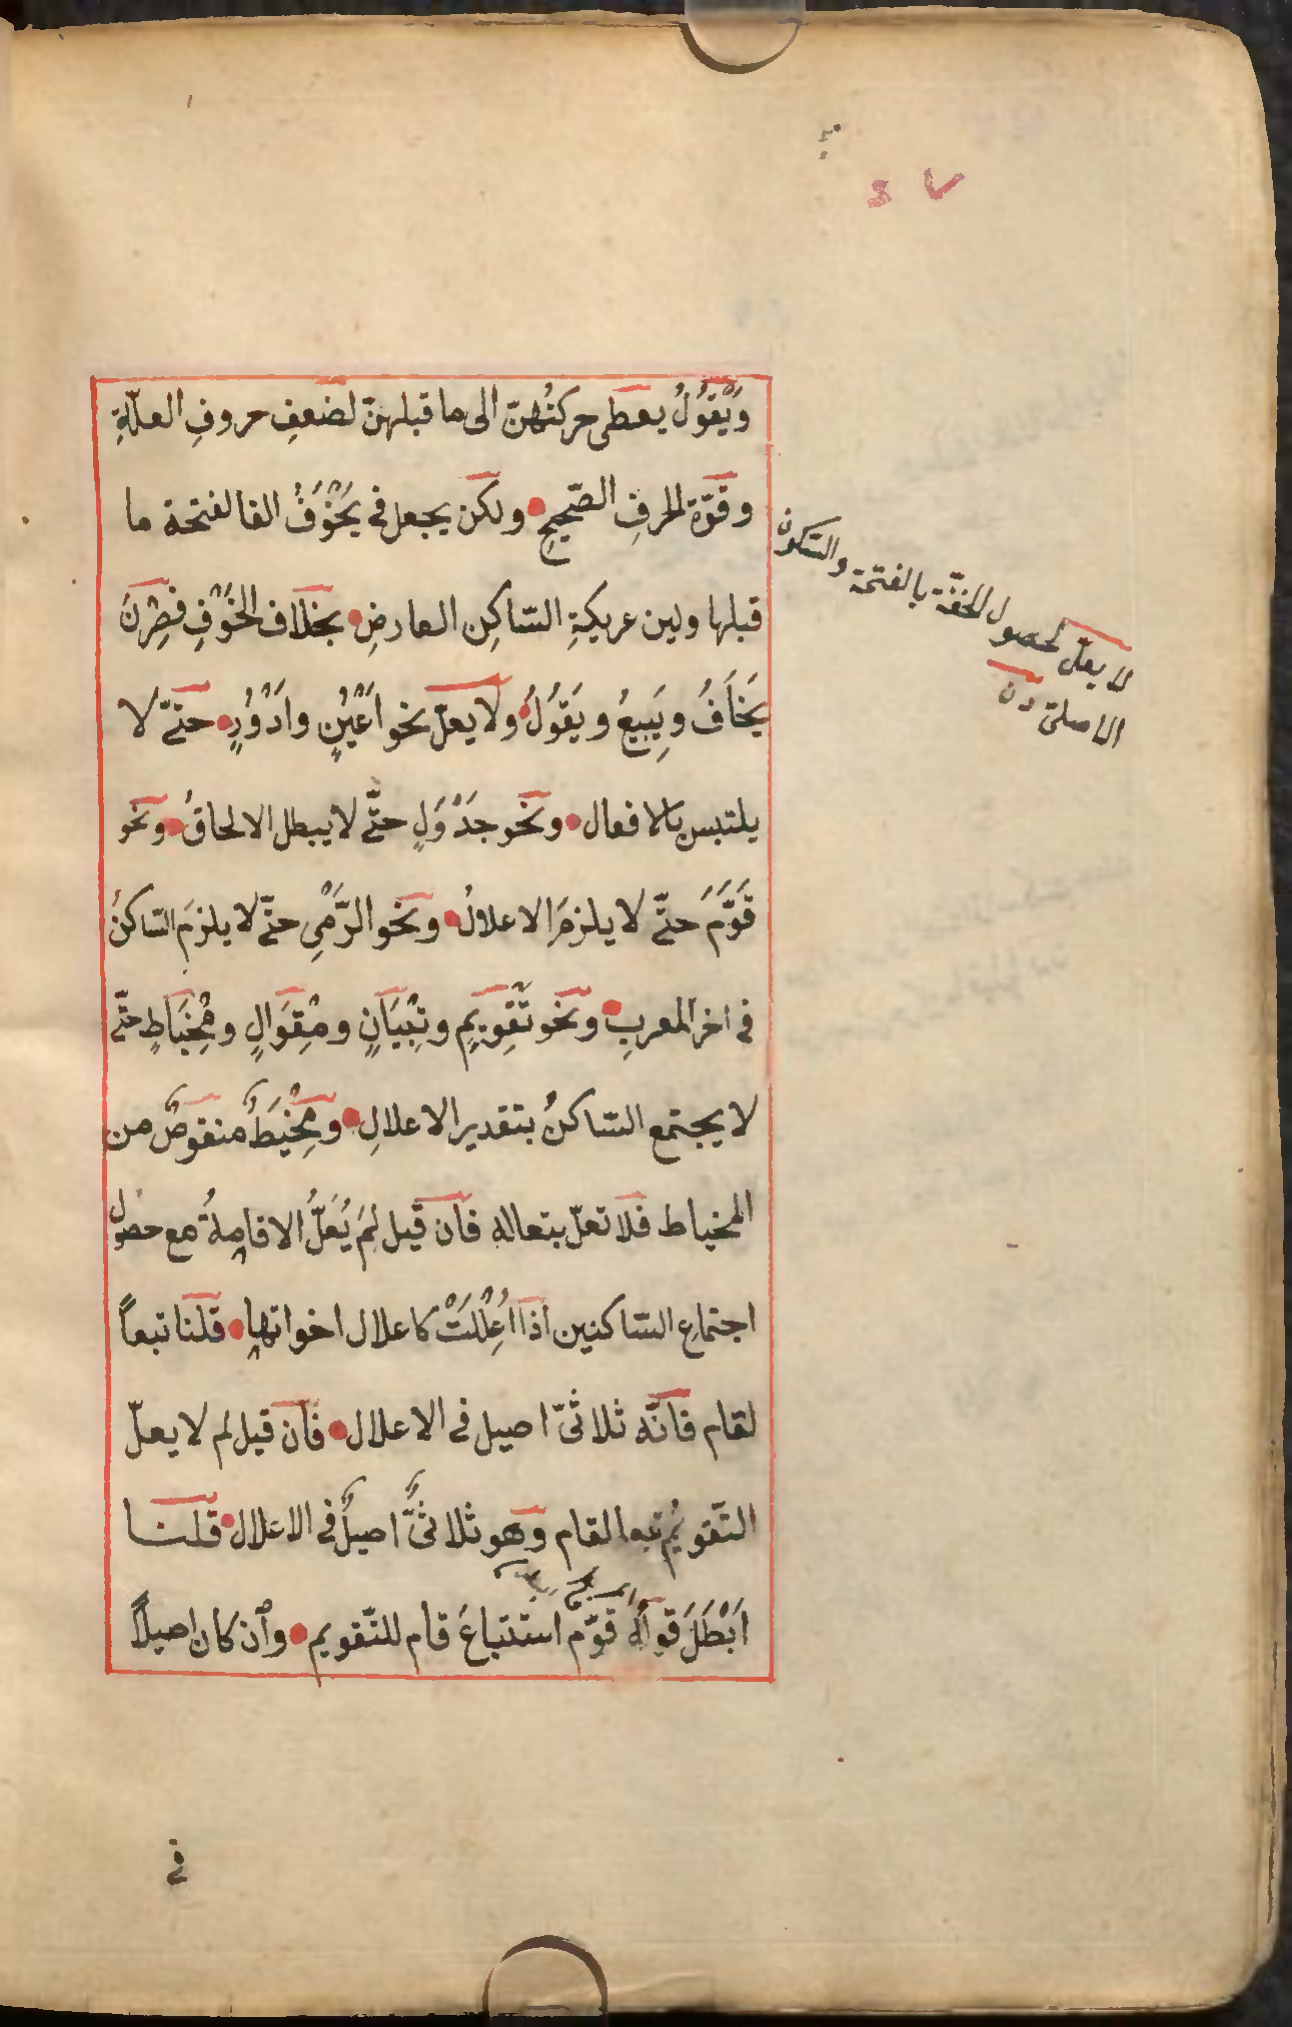 وَيَقْوُلُ يعطى حركتُهنّ الى ما قبلهنّ لضعفِ حروفِ العلّةِ
وقوّة الحرفِ الصّحيحِ ولكن يجعل فى يَخْوَفُ الفا لفتحة ما
قبلها ولين عريكةِ السّاكِن العارضِ بخلاف الخَوْفِ فصِرْنَ
يَخَافُ ويَبِيعُ ويَقوُلُ ولا يعلّ نحو اَعْيُنٍ واَدْوُرٍ حتىّ لا
يلتبس بالافعال ونحو جَدْوَلٍ حتىّ لا يبطل الالحاقُ ونحو
قَوَّمَ حتىّ لا يلزمَ الاعلالُ ونحو الرَّمْىِ حتىّ لا يلزمَ السّاكنُ
فى اخر المعربِ ونحو تَقْوِيمٍ وتِبْيَانٍ ومِقْوَالٍ ومِخْيَاطٍ حتىّ
لا يجتمع السّاكنُ بتقدير الاعلالِ ومِخْيَطٌ منقوصٌ من
المخياط فلا تعلّ بتعاله فان قيل لِمَ يُعَلُّ الاقامةُ مع حصول
اجتماعِ السّاكنين اذا اُعِلْلَتْ كاعلال اخواتها قلنا تبعاً
لقام فانّه ثلاثىّ اصيل فى الاعلال فان قيل لم لا يعلّ
التّقويُم تبعا لقام وهو ثلاثىٌّ اصيلٌ فى الاعلال قلنا
اَبْطَلَ قوله قوّم استتباعَ قام للتّقويم وان كان اصيلاً
فى
لا يعلّ لحصول الخفّة بالفتحة والسّكون
الاصلىّ